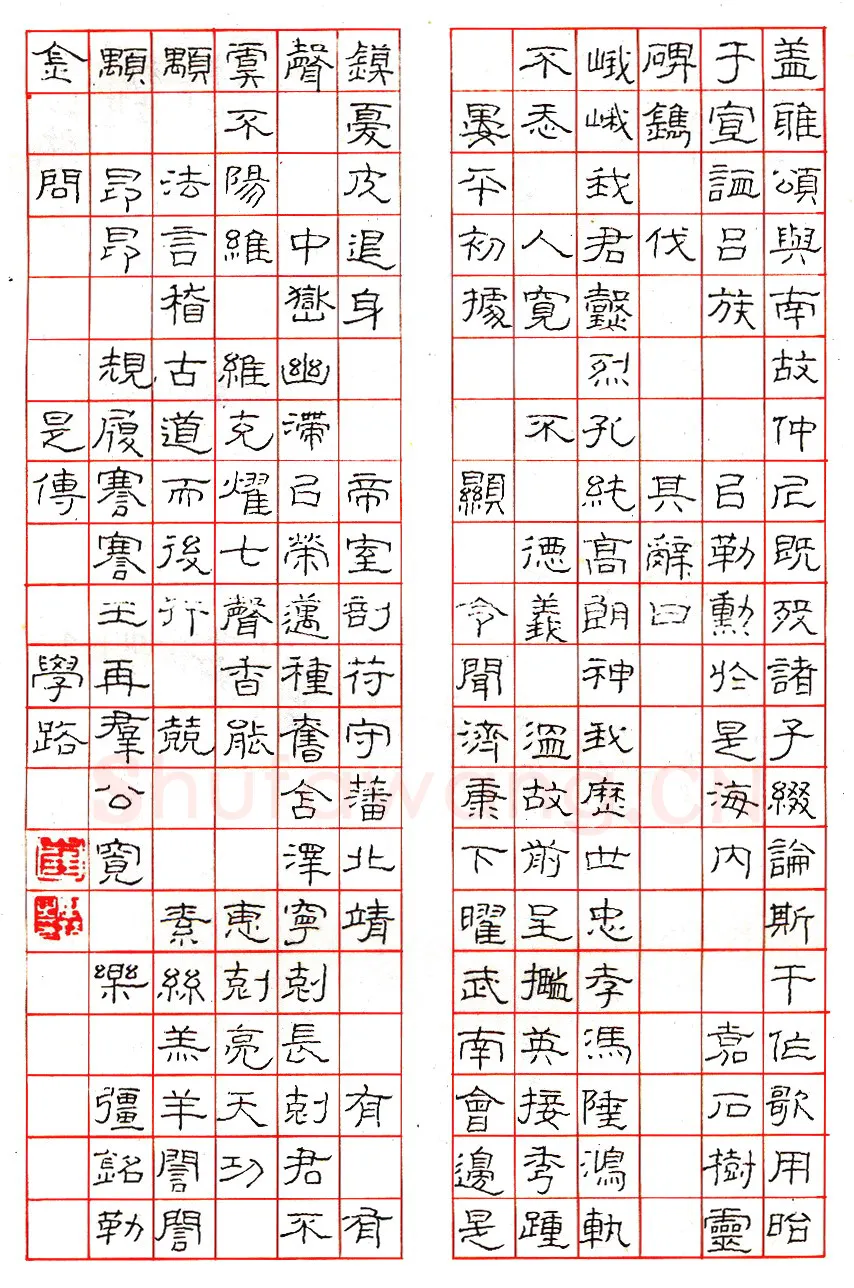 盖雎頌與南故仲尼既歿諸子綴論斯干作歌用昭
于宣謚呂族㠯勒勳於是海內嘉石樹靈
碑鐫伐其辭曰
峨峨我君懿烈孔純高朗神我歷世忠孝馮隆鴻軌
不忝人寬不德義溫故前呈攬英接秀踵
晏平初據顯令聞濟康下曜武南會邊是
鎮憂皮退身帝室剖符守藩北靖有有
聲中嶽幽滯㠯榮邁種舊含澤寧剋長剋君不
虞不陽維維克燿七聲香能惠剋亮天功
顒法言稽古道而後行兢素絲羔羊誾誾
顒昂昂規履謇謇王再羣公寬樂彊銘勒
金問是傳學路
Shufawang.CN